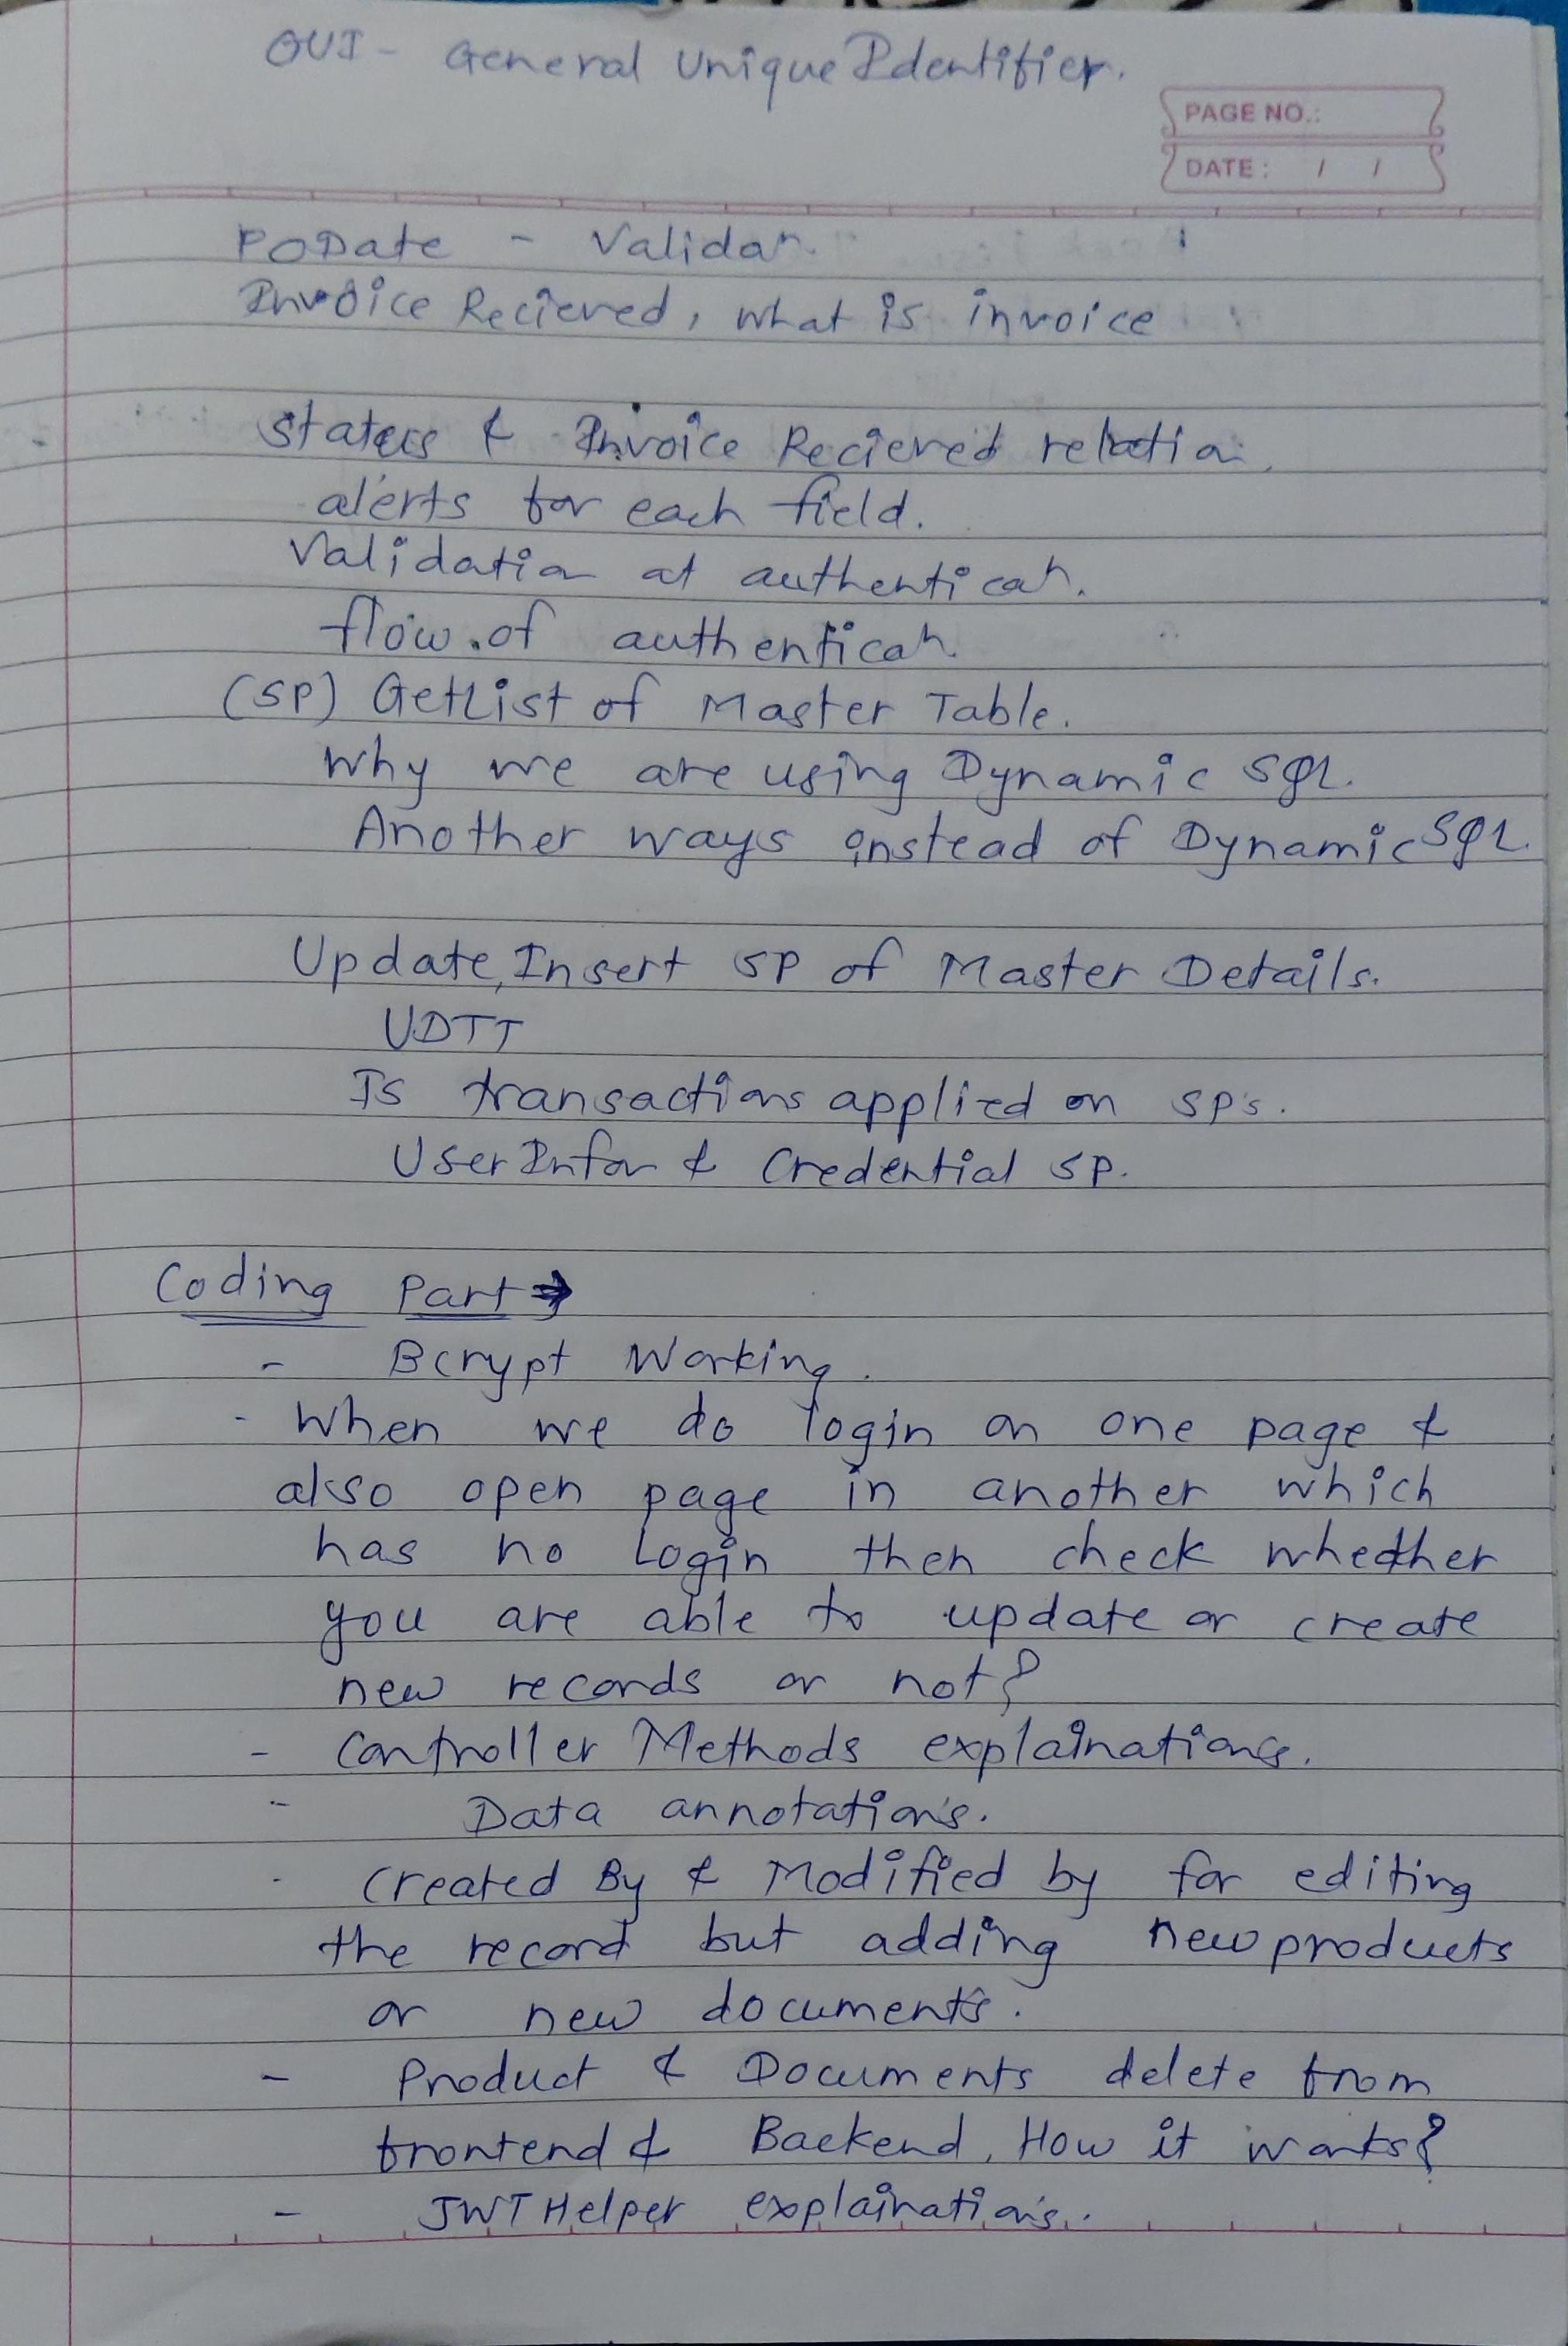 GUI - General Unique Identifier.
PAGE NO.:
DATE: / /
PODate - Validan.
Invoice Recieved, what is invoice
status & Invoice Recieved relation.
alerts for each field.
Validation at authentican.
flow of authentican.
(SP) GetList of Master Table.
Why we are using Dynamic SQL.
Another ways instead of Dynamic SQL.
Update, Insert SP of Master Details.
UDTT
Is transactions applied on SP's.
UserInfor & Credential SP.
Coding Part →
- Bcrypt Working.
- When we do login on one page &
also open page in another which
has no Login then check whether
you are able to update or create
new records or not?
- Controller Methods explainations.
- Data annotations.
- Created By & Modified by for editing
the record but adding new products
or new documents.
- Product & Documents delete from
frontend & Backend, How it works?
- JWTHelper explainations.